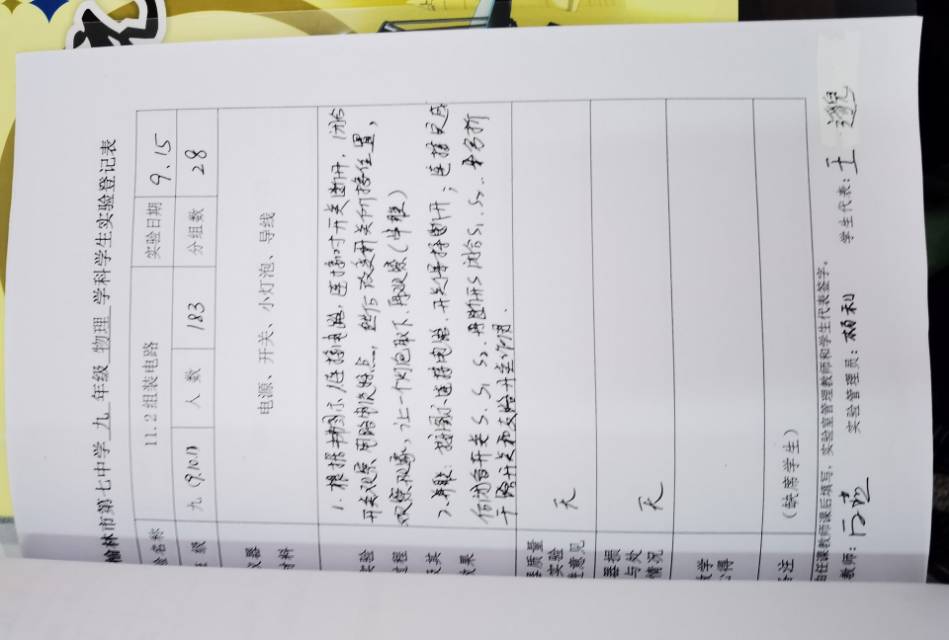 榆林市第七中学 九 年级 物理 学科学生实验登记表
验名称 11.2组装电路 实验日期 9.15
级 九(9.10.11) 人数 183 分组数 28
仪器
材料
电源、开关、小灯泡、导线
实验
过程
及其
效果
1.根据书图示,连接电路,连接时开关断开,闭合
开关观察
特点
改变开关所接位置,
观察现象,让一个灯泡取下,再观察(串联)
2.并联:按图示连接电路,开关保持断开;连接完成
后闭合开关S、S₁、S₂,再断开S闭合S₁、S₂
干路开关和支路开关作用.
器质量
实验
意见
无
器损
与处
情况
无
教学
心得
备注 (缺席学生)
由任课教师课后填写,实验室管理教师和学生代表签字。
教师: 实验管理员: 学生代表:王